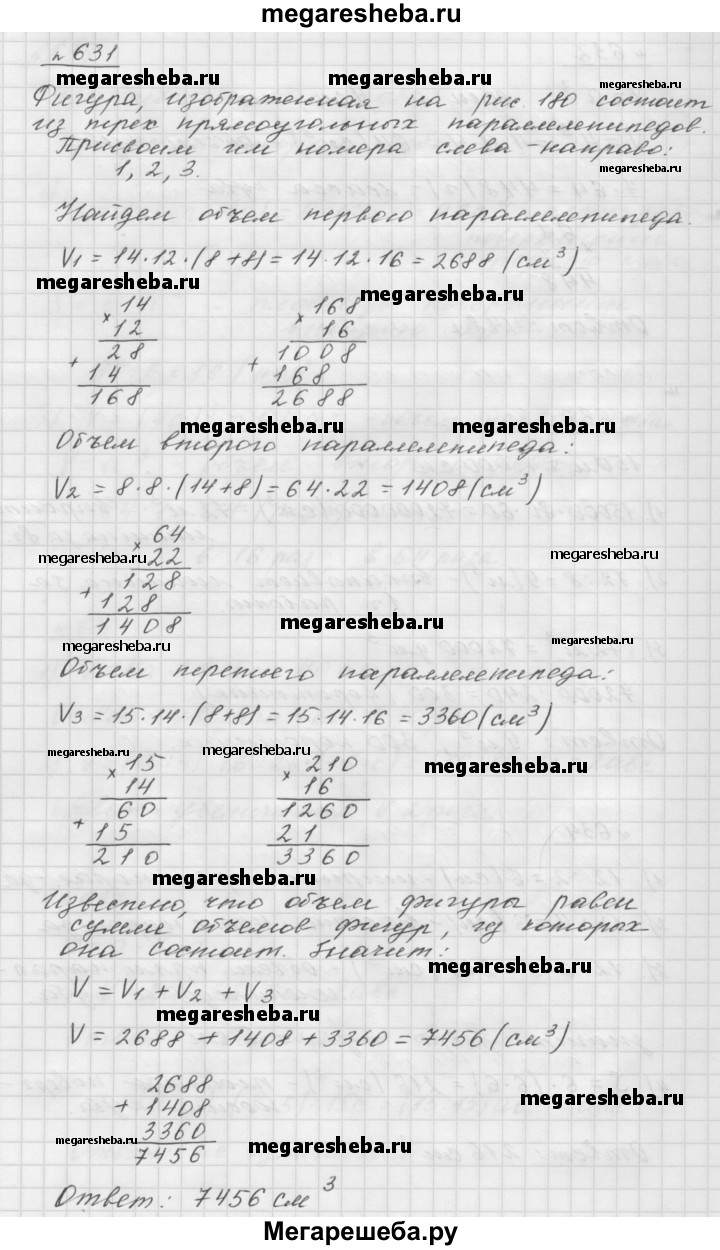 megaresheba.ru
№ 631
megaresheba.ru megaresheba.ru
Фигура, изображенная на рис. 180 состоит
megaresheba.ru
из трех прямоугольных параллелепипедов.
megaresheba.ru
Присвоим им номера слева-направо:
1, 2, 3.
megaresheba.ru
Найдем объем первого параллелепипеда.
V1 = 14·12·(8+8) = 14·12·16 = 2688 (см³)
megaresheba.ru megaresheba.ru
× 14 × 168
12 16
+ 28 + 1008
14 168
168 2688
megaresheba.ru megaresheba.ru
Объем второго параллелепипеда:
V2 = 8·8·(14+8) = 64·22 = 1408 (см³)
× 64
megaresheba.ru 22 megaresheba.ru
+ 128
128
1408 megaresheba.ru
megaresheba.ru megaresheba.ru
Объем третьего параллелепипеда:
V3 = 15·14·(8+8) = 15·14·16 = 3360 (см³)
megaresheba.ru megaresheba.ru
× 15 × 210 megaresheba.ru
14 16
+ 60 1260
15 21
210 3360
megaresheba.ru
Известно, что объем фигуры равен
сумме объемов фигур, из которых
она состоит. Значит:
megaresheba.ru
V = V1 + V2 + V3
megaresheba.ru
V = 2688 + 1408 + 3360 = 7456 (см³)
2688
+ 1408 megaresheba.ru
3360
megaresheba.ru 7456 megaresheba.ru
Ответ: 7456 см³
Мегарешеба.ру